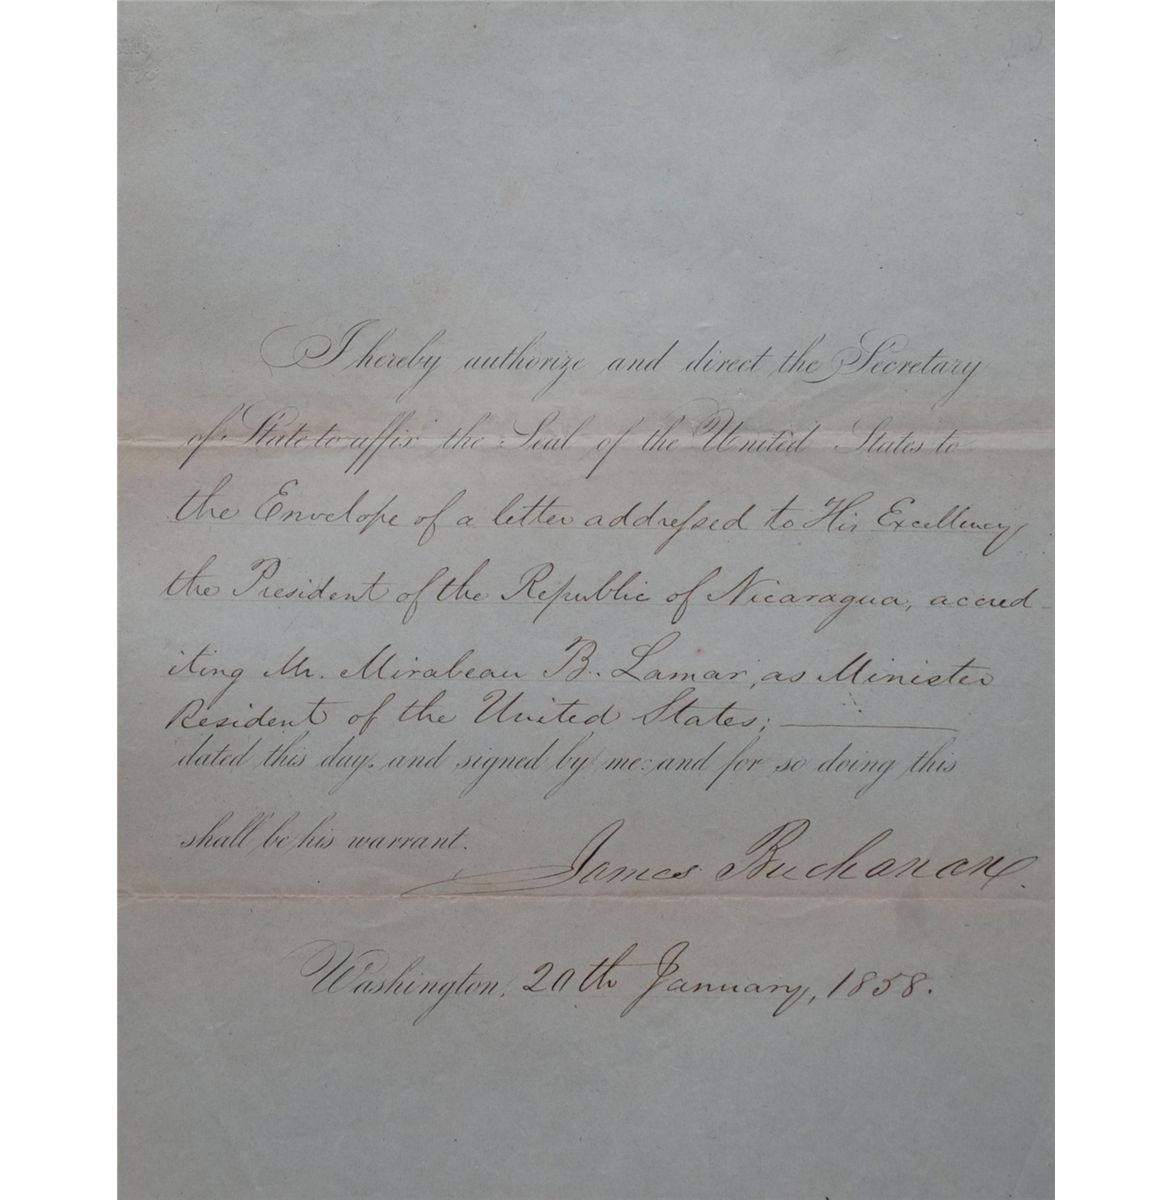 I hereby authorize and direct the Secretary
of State to affix the Seal of the United States to
the Envelope of a letter addreſsed to His Excellency
the President of the Republic of Nicaragua, accred-
iting Mr. Mirabeau B. Lamar, as Minister
Resident of the United States;
dated this day, and signed by me: and for so doing this
shall be his warrant.
James Buchanan.
Washington, 20th January, 1858.